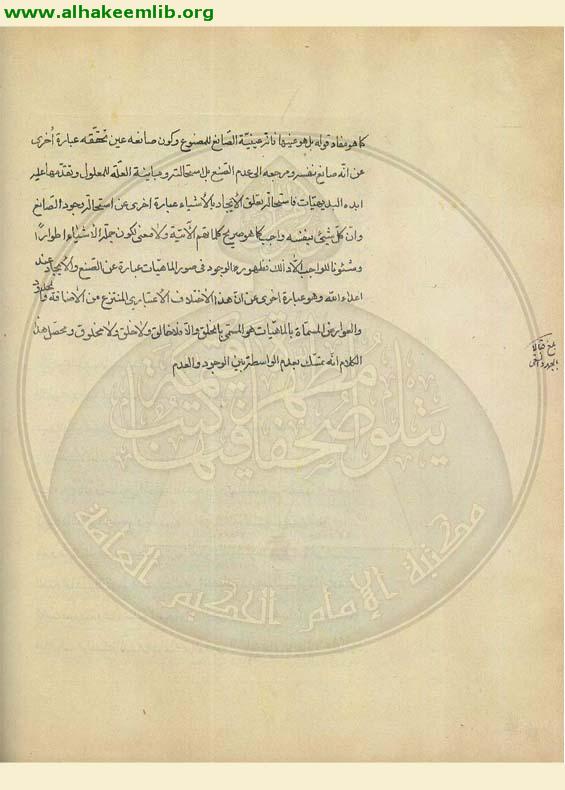 www.alhakeemlib.org
كما هو مفاد قوله بل هو عينها فانّ عينيّة الصّانع للمصنوع وكون صانعه عين تحقّقه عبارة أخرى
عن انّه صانع نفسه ومرجعه الى عدم الصّنع بل استحالته ومباينة العلّة للمعلول وتقدّمها عليه
ابده البديهيّات فاستحالة تعلّق الايجاد بالأشياء عبارة اخرى عن استحالة وجود الصّانع
وانّ كلّ شئ بنفسه واجب كما هو صريح كلماتهم الآتية ولا معنى لكون جملة الأشياء اطوارًا
وشئونا للواجب الّا ذلك فظهور الوجود فى صور الماهيّات عبارة عن الصّنع والايجاد عند
اعداء الله وهو عبارة اخرى عن انّ هذا الاختلاف الاعتبارى المنتزع من الاضافة والحدود
والعوارض المسمّاة بالماهيّات هى المسمّى بالخلق والّا فلا خالق ولا خلق ولا مخلوق ومحصّل هذا
الكلام انّه تمسّك بعدم الواسطة بين الوجود والعدم
بلغ
يتلو صحفا مطهرة فيها كتب قيمة
مكتبة الإمام الحكيم العامة